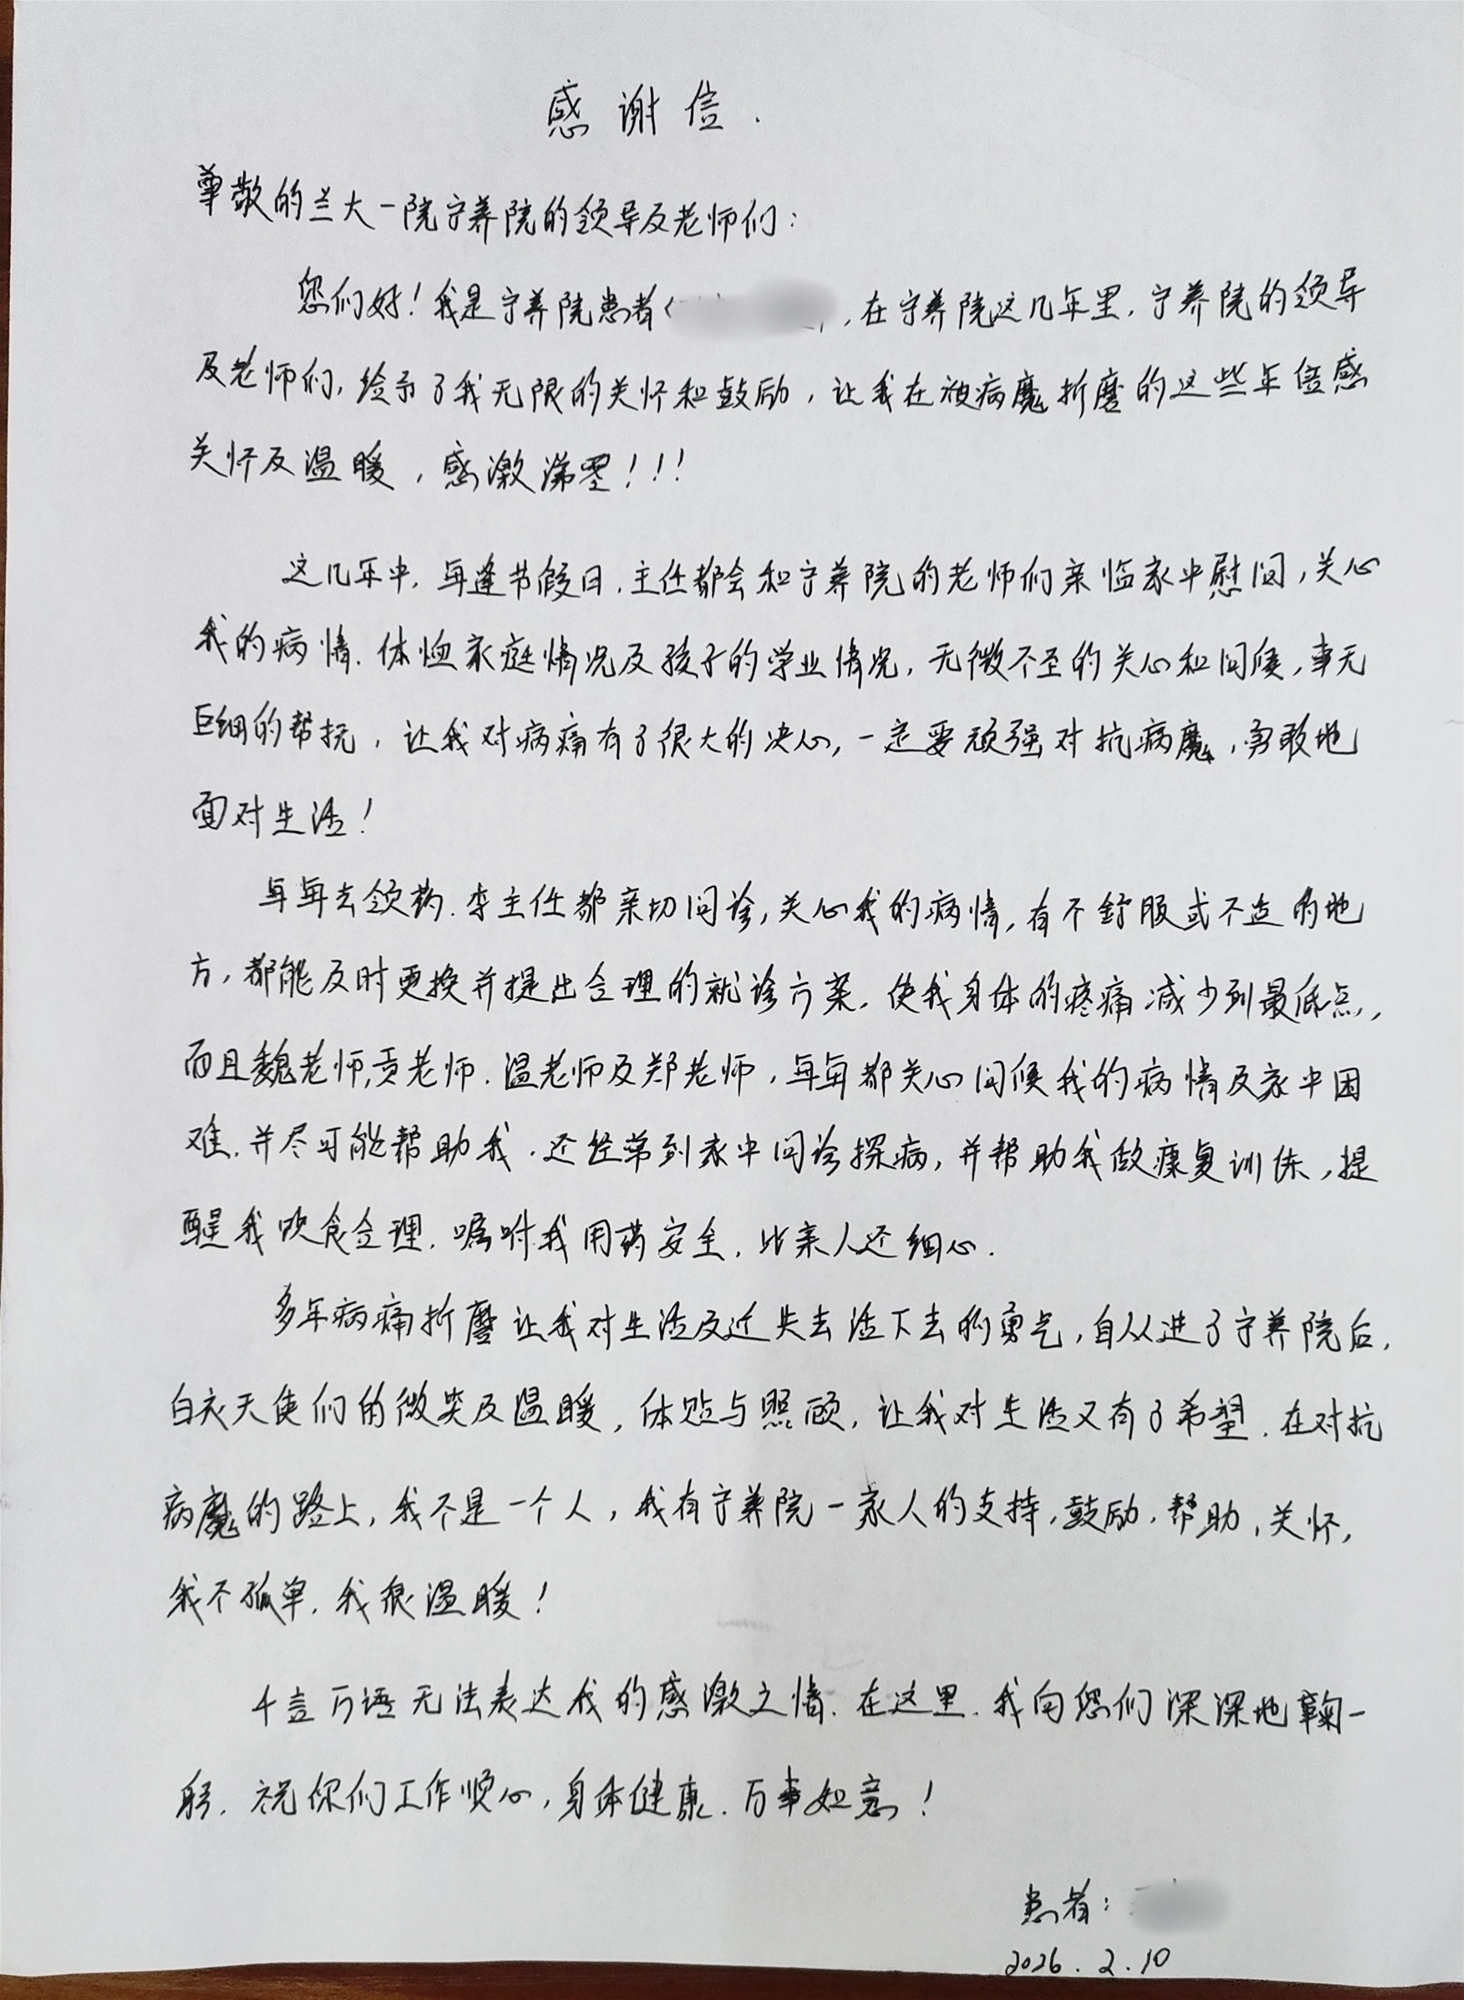 感谢信.
尊敬的兰大一院宁养院的领导及老师们:
您们好!我是宁养院患者,在宁养院这几年里,宁养院的领导
及老师们,给予了我无限的关怀和鼓励,让我在被病魔折磨的这些年倍感
关怀及温暖,感激涕零!!!
这几年中,每逢节假日,主任都会和宁养院的老师们亲临家中慰问,关心
我的病情,体恤家庭情况及孩子的学业情况,无微不至的关心和问候,事无
巨细的帮抚,让我对病痛有了很大的决心,一定要顽强对抗病魔,勇敢地
面对生活!
每每去领药,李主任都亲切问诊,关心我的病情,有不舒服或不适的地
方,都能及时更换并提出合理的就诊方案,使我身体的疼痛减少到最低点,
而且魏老师,贡老师,温老师及郑老师,每每都关心问候我的病情及家中困
难,并尽可能帮助我,还经常到家中问诊探病,并帮助我做康复训练,提
醒我饮食合理,嘱咐我用药安全,比亲人还细心.
多年病痛折磨让我对生活及近失去活下去的勇气,自从进了宁养院后,
白衣天使们的微笑及温暖,体贴与照顾,让我对生活又有了希望,在对抗
病魔的路上,我不是一个人,我有宁养院一家人的支持,鼓励,帮助,关怀,
我不孤单,我很温暖!
千言万语无法表达我的感激之情,在这里,我向您们深深地鞠一
躬,祝你们工作顺心,身体健康,万事如意!
患者:
2026.2.10